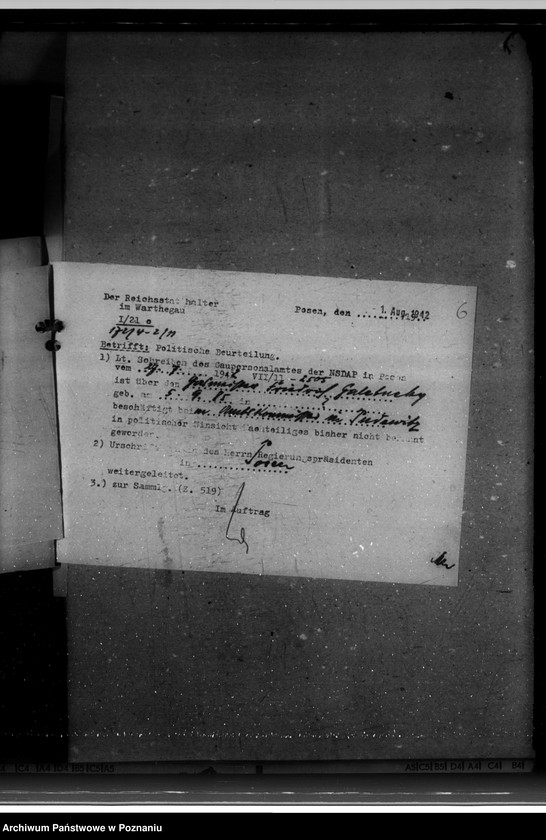 6
Der Reichsstatthalter
im Warthegau
I/21 c
Posen, den 1. Aug. 1942
Betrifft: Politische Beurteilung.
1) Lt. Schreiben des Gaupersonalamtes der NSDAP in Posen
vom 29. 7. 1942 VII/11 -
ist über den Galetschky
geb. am 5. 9. 85 in
beschäftigt beim Amtskommissar in Pudewitz
in politischer Hinsicht Nachteiliges bisher nicht bekannt
geworden.
2) Urschriftlich den Herrn Regierungspräsidenten
in Posen
weitergeleitet.
3.) zur Samml. (Z. 519)
Im Auftrag
Archiwum Państwowe w Poznaniu